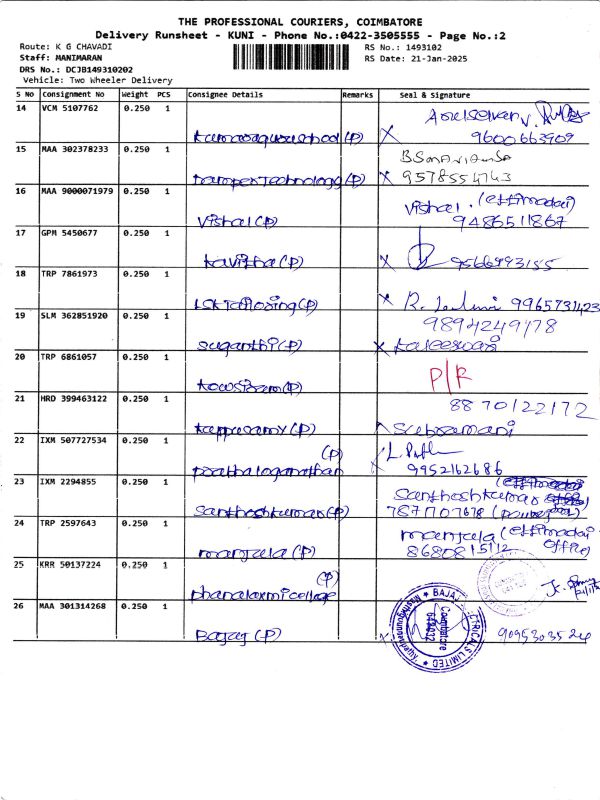 THE PROFESSIONAL COURIERS, COIMBATORE
Delivery Runsheet - KUNI - Phone No.:0422-3505555 - Page No.:2
Route: K G CHAVADI
RS No.: 1493102
Staff: MANIMARAN
RS Date: 21-Jan-2025
DRS No.: DCJB149310202
Vehicle: Two Wheeler Delivery
S No Consignment No Weight PCS Consignee Details Remarks Seal & Signature
14 VCM 5107762 0.250 1
(P) 9600663909
15 MAA 302378233 0.250 1
(P) 9578554743
16 MAA 9000071979 0.250 1 Vishal. (ettimadai)
Vishal (P) 9486511867
17 GPM 5450677 0.250 1
kavitha (P) 9566993155
18 TRP 7861973 0.250 1
LSK Tailosing (P) R. 9965731423
19 SLM 362851920 0.250 1 9894249178
suganthi (P)
20 TRP 6861057 0.250 1
(P) P/R
21 HRD 399463122 0.250 1 8870122172
(P) Subramani
22 IXM 507727534 0.250 1 (P) L.
9952162686
23 IXM 2294855 0.250 1 Santhoshkumar
Santhoshkumar (P) 787707678
24 TRP 2597643 0.250 1 manjula (ettimadai
manjula (P) 8680815112 office)
25 KRR 50137224 0.250 1 (P)
dhanalaxmi collage
26 MAA 301314268 0.250 1
Bajaj (P) 9095303524
BAJAJ
Coimbatore